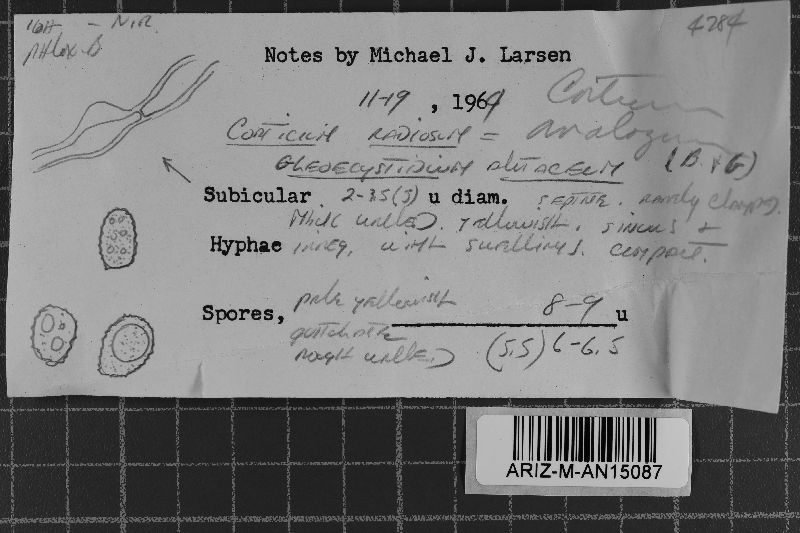 KOH - N.R.
Phlox-B
4284
Notes by Michael J. Larsen
11-19, 1964
Corticium
analogum
CORTICIUM RADIOSUM =
GLEOCYSTIDIUM ALUTACEUM (B. & G)
Subicular 2-3.5(5) u diam. SEPTATE. rarely clamped.
thick walled. yellowish.
Hyphae irreg. with swellings. compact.
Spores, pale yellowish 8-9 u
guttulate
rough walled (5.5) 6-6.5
ARIZ-M-AN15087